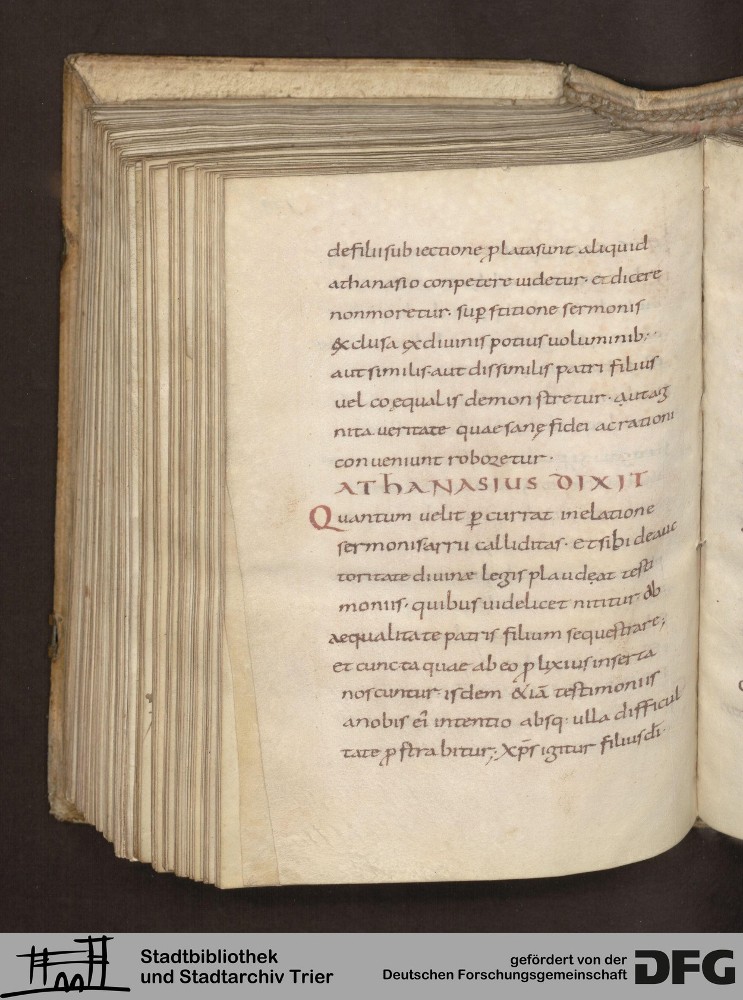 de filii subiectione ꝓlata sunt aliquid
athanasio conpetere uidetur· et dicere
non moretur· suꝑstitione sermonis
&clusa ex diuinis potius uoluminib;·
aut similis· aut dissimilis patri filius
uel coęqualis demonstretur· aut ag
nita ueritate quae sanę fidei ac rationi
conueniunt roboretur·
ATHANASIUS DIXIT
Quantum uelit ꝑcurrat in elatione
sermonis arrii calliditas· et sibi de auc
toritate diuinæ legis plaudeat testi
moniis· quibus uidelicet nititur ab
aequalitate patris filium sequestrare;
et cuncta quae ab eo ꝓlixius inserta
noscuntur isdem &iā testimoniis
a nobis ei intentio absq· ulla difficul
tate ꝓstrabitur; xp̄s igitur filius dī·
Stadtbibliothek
und Stadtarchiv Trier
gefördert von der
Deutschen Forschungsgemeinschaft
DFG